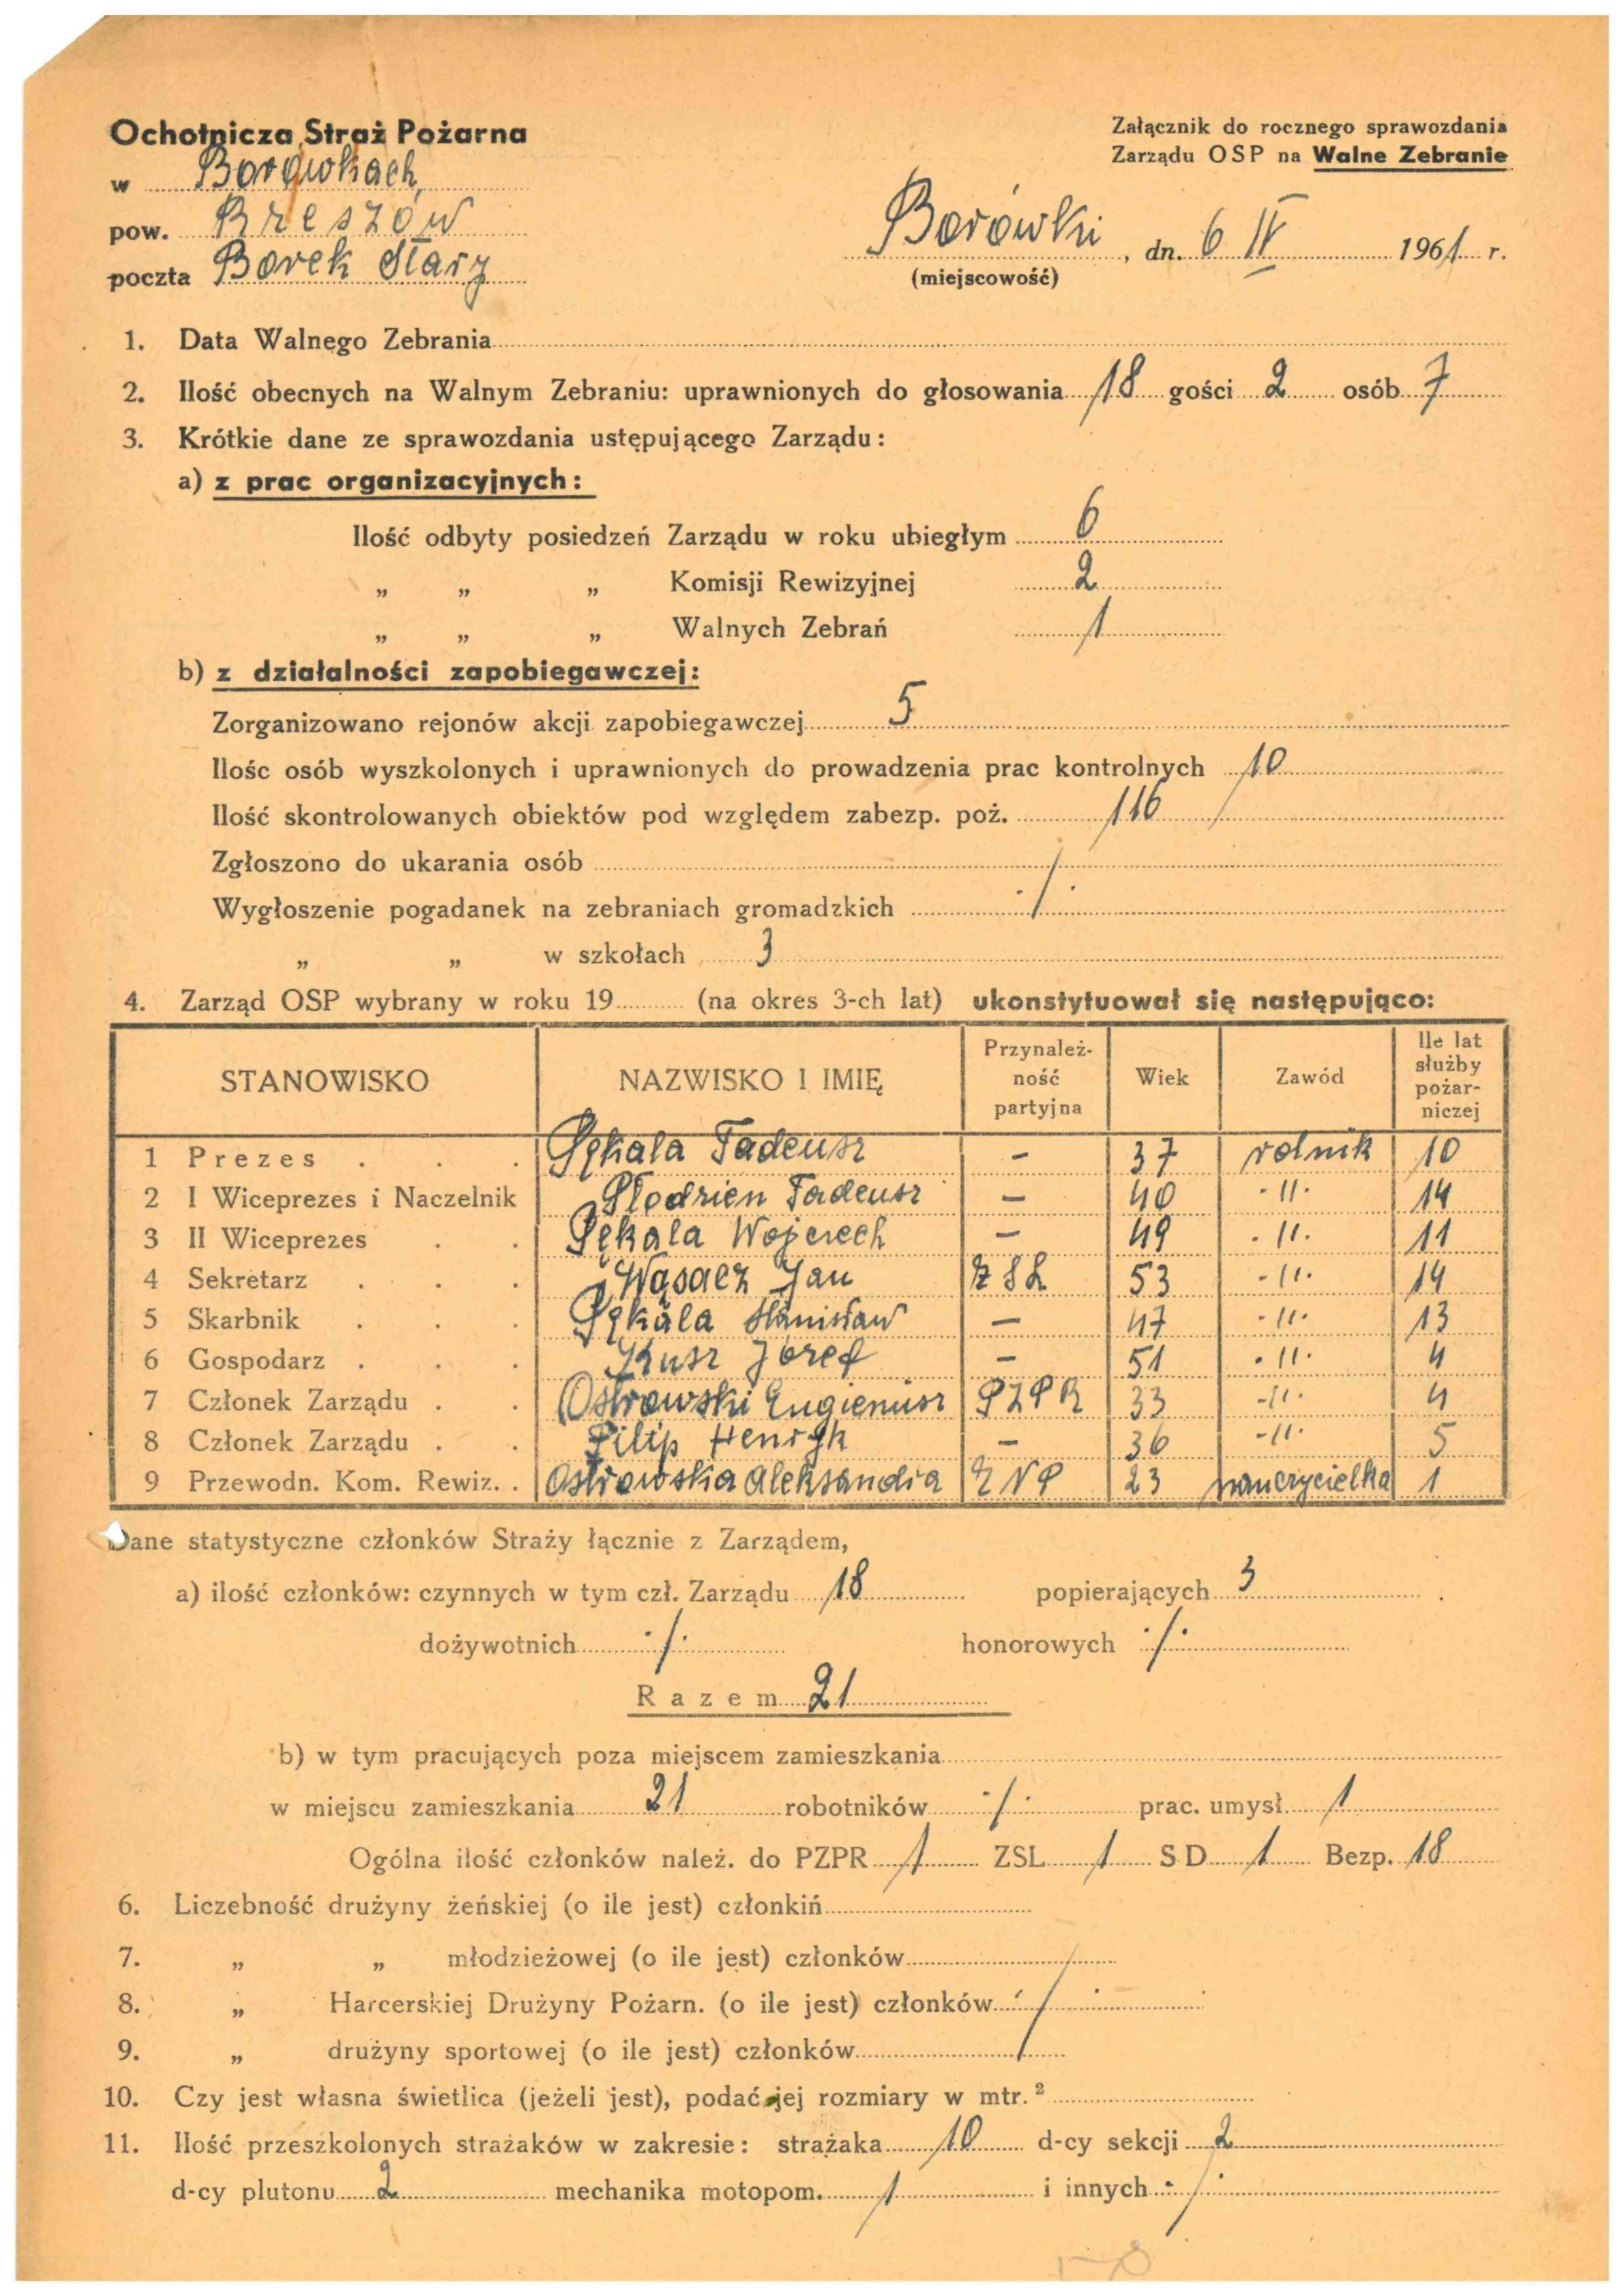 Ochotnicza Straż Pożarna
w Borówkach
pow. Rzeszów
poczta Borek Stary
Załącznik do rocznego sprawozdania
Zarządu OSP na Walne Zebranie
Borówki, dn. 6 IV 1961 r.
(miejscowość)
1. Data Walnego Zebrania
2. Ilość obecnych na Walnym Zebraniu: uprawnionych do głosowania 18 gości 2 osób 7
3. Krótkie dane ze sprawozdania ustępującego Zarządu:
a) z prac organizacyjnych:
Ilość odbyty posiedzeń Zarządu w roku ubiegłym 6
„ „ „ Komisji Rewizyjnej 2
„ „ „ Walnych Zebrań 1
b) z działalności zapobiegawczej:
Zorganizowano rejonów akcji zapobiegawczej 5
Ilośc osób wyszkolonych i uprawnionych do prowadzenia prac kontrolnych 10
Ilość skontrolowanych obiektów pod względem zabezp. poż. 116
Zgłoszono do ukarania osób
Wygłoszenie pogadanek na zebraniach gromadzkich ·/·
„ „ w szkołach 3
4. Zarząd OSP wybrany w roku 19 (na okres 3-ch lat) ukonstytuował się następująco:
STANOWISKO NAZWISKO I IMIĘ Przynależ-ność partyjna Wiek Zawód Ile lat służby pożar-niczej
1 Prezes . . . Sękala Tadeusz – 37 rolnik 10
2 I Wiceprezes i Naczelnik Płodzień Tadeusz – 40 -11- 14
3 II Wiceprezes . . Pękala Wojciech – 49 -11- 11
4 Sekretarz . . . Wąsacz Jan ZSL 53 -11- 14
5 Skarbnik . . . Pękala Stanisław – 47 -11- 13
6 Gospodarz . . . Kusz Józef – 51 -11- 4
7 Członek Zarządu . . Ostrowski Eugieniusz PZPR 33 -11- 4
8 Członek Zarządu . . Filip Henryk – 36 -11- 5
9 Przewodn. Kom. Rewiz. . Ostrowska Aleksandra ZNP 23 nauczycielka 1
Dane statystyczne członków Straży łącznie z Zarządem,
a) ilość członków: czynnych w tym czł. Zarządu 18 popierających 3
dożywotnich ·/· honorowych ·/·
Razem 21
b) w tym pracujących poza miejscem zamieszkania
w miejscu zamieszkania 21 robotników ·/· prac. umysł. 1
Ogólna ilość członków należ. do PZPR 1 ZSL 1 SD 1 Bezp. 18
6. Liczebność drużyny żeńskiej (o ile jest) członkiń
7. „ „ młodzieżowej (o ile jest) członków
8. „ Harcerskiej Drużyny Pożarn. (o ile jest) członków ·/·
9. „ drużyny sportowej (o ile jest) członków
10. Czy jest własna świetlica (jeżeli jest), podać jej rozmiary w mtr.²
11. Ilość przeszkolonych strażaków w zakresie: strażaka 10 d-cy sekcji 2
d-cy plutonu 2 mechanika motopom. 1 i innych ·/·